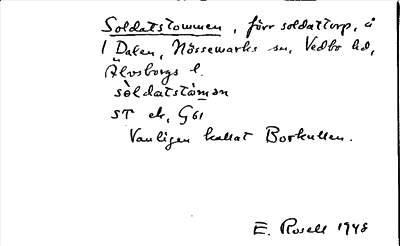 Soldatstommen, förr soldattorp, å
1 Dalen, Nössemarks sn, Vedbo hd,
Älvsborgs l.
sòldatstòmən
ST ek, G61
Vanligen kallat Borkullen.
E. Rosell 1948